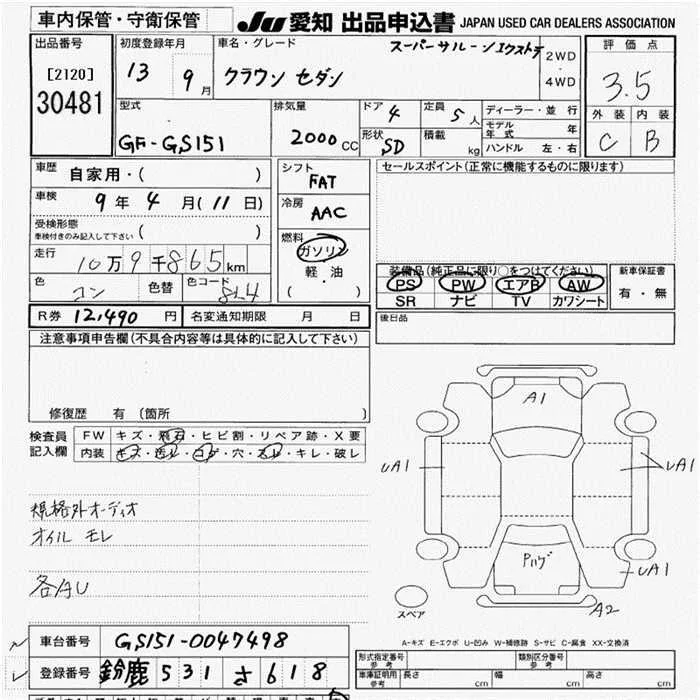 車内保管・守衛保管
JU 愛知 出品申込書 JAPAN USED CAR DEALERS ASSOCIATION
出品番号
[2120]
30481
初度登録年月
13 9月
車名・グレード
スーパーサルーンエクストラ
クラウン セダン
2WD
・
4WD
評価点
3.5
外装 内装
C B
型式
GF-GS151
排気量
2000cc
ドア 4
定員 5人
形状 SD
積載 kg
ディーラー・並行
モデル年式 年
ハンドル 左・右
車歴 自家用・( )
車検 9年4月(11日)
受検形態
車検付きのみ記入して下さい ( )
走行 10万9千865km
色 コン 色替 色コード 8L4
シフト
FAT
冷房
AAC
燃料
ガソリン
軽・油
( )
セールスポイント(正常に機能するものに限ります)
装備品(純正品に限り○をつけてください)
PS PW エアB AW
SR ナビ TV カワシート
新車保証書
有・無
後日品
R券 12,490円 名変通知期限 月 日
注意事項申告欄(不具合内容等は具体的に記入して下さい)
修復歴 有 (箇所 )
検査員記入欄
FW キズ・飛石・ヒビ割・リペア跡・X要
内装 キズ・汚レ・コゲ・穴・スレ・キレ・破レ
規格外オーディオ
オイル モレ
各AU
A1
UA1
UA1
Pハゲ
UA1
A2
スペア
A-キズ E-エクボ U-凹み W-補修跡 S-サビ C-腐食 XX-交換済
車台番号 GS151-0047498
登録番号 鈴鹿 531 さ 618
形式指定番号 参考
類別区分番号 参考
車庫証明用 参考 長さ cm 幅 cm 高さ cm